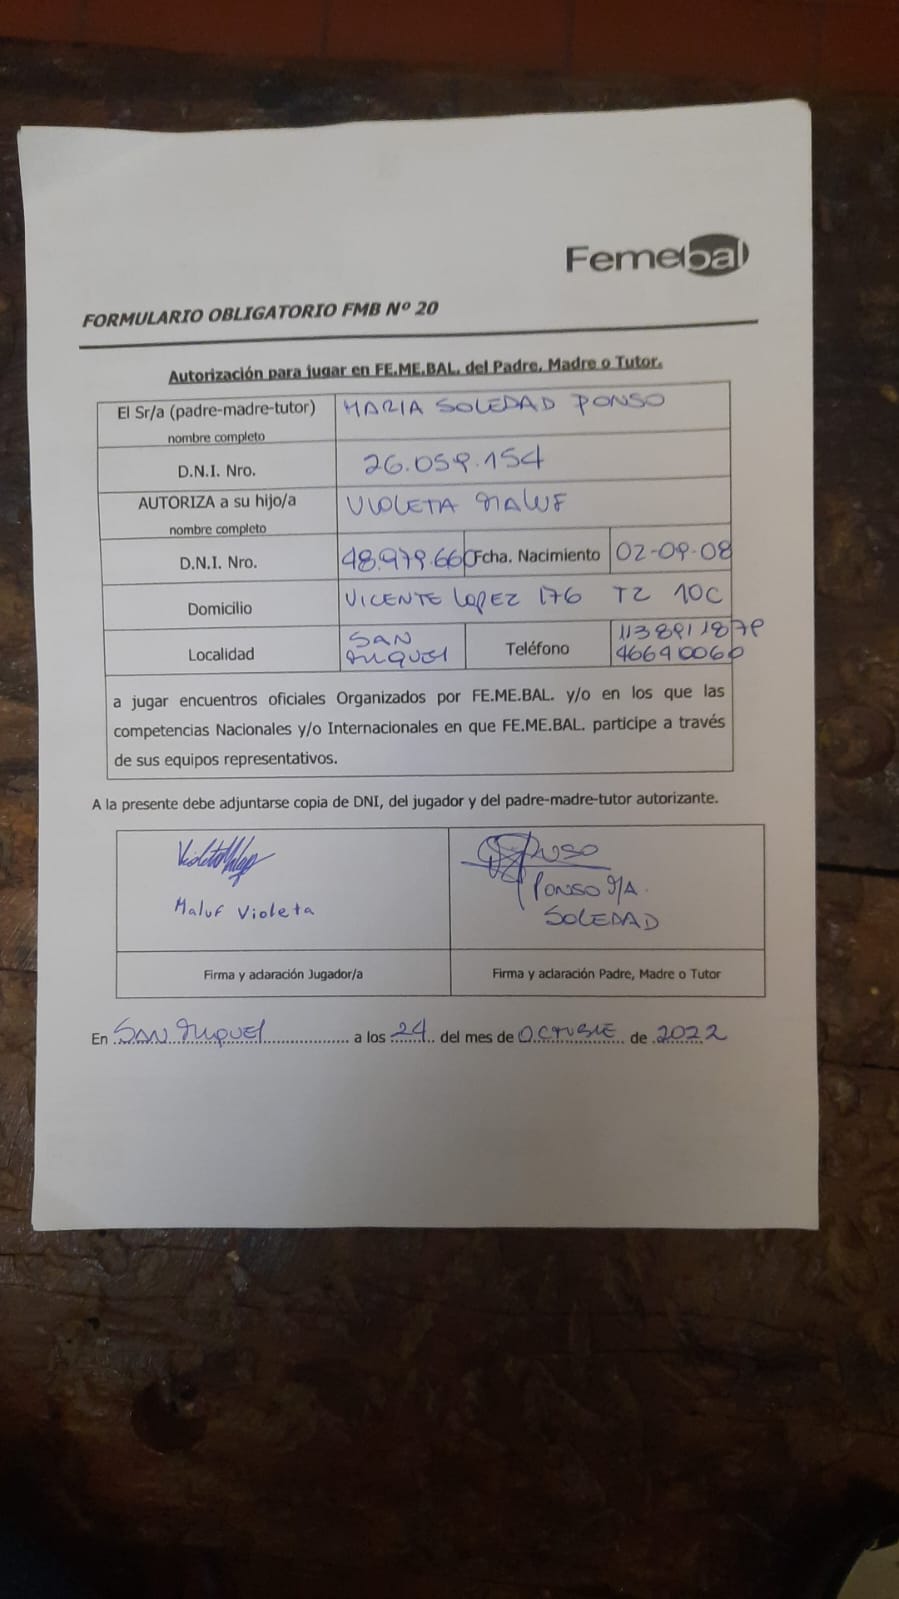 Femebal
FORMULARIO OBLIGATORIO FMB Nº 20
Autorización para jugar en FE.ME.BAL. del Padre, Madre o Tutor.
El Sr/a (padre-madre-tutor) MARIA SOLEDAD PONSO
nombre completo
D.N.I. Nro. 26.059.154
AUTORIZA a su hijo/a VIOLETA MALUF
nombre completo
D.N.I. Nro. 48.979.660 Fcha. Nacimiento 02-09-08
Domicilio VICENTE LOPEZ 176 T2 10C
Localidad SAN MIGUEL Teléfono 1138911879
46640060
a jugar encuentros oficiales Organizados por FE.ME.BAL. y/o en los que las
competencias Nacionales y/o Internacionales en que FE.ME.BAL. participe a través
de sus equipos representativos.
A la presente debe adjuntarse copia de DNI, del jugador y del padre-madre-tutor autorizante.
Maluf Violeta
Ponso
PONSO MA.
SOLEDAD
Firma y aclaración Jugador/a
Firma y aclaración Padre, Madre o Tutor
En SAN MIGUEL a los 24 del mes de OCTUBRE de 2022